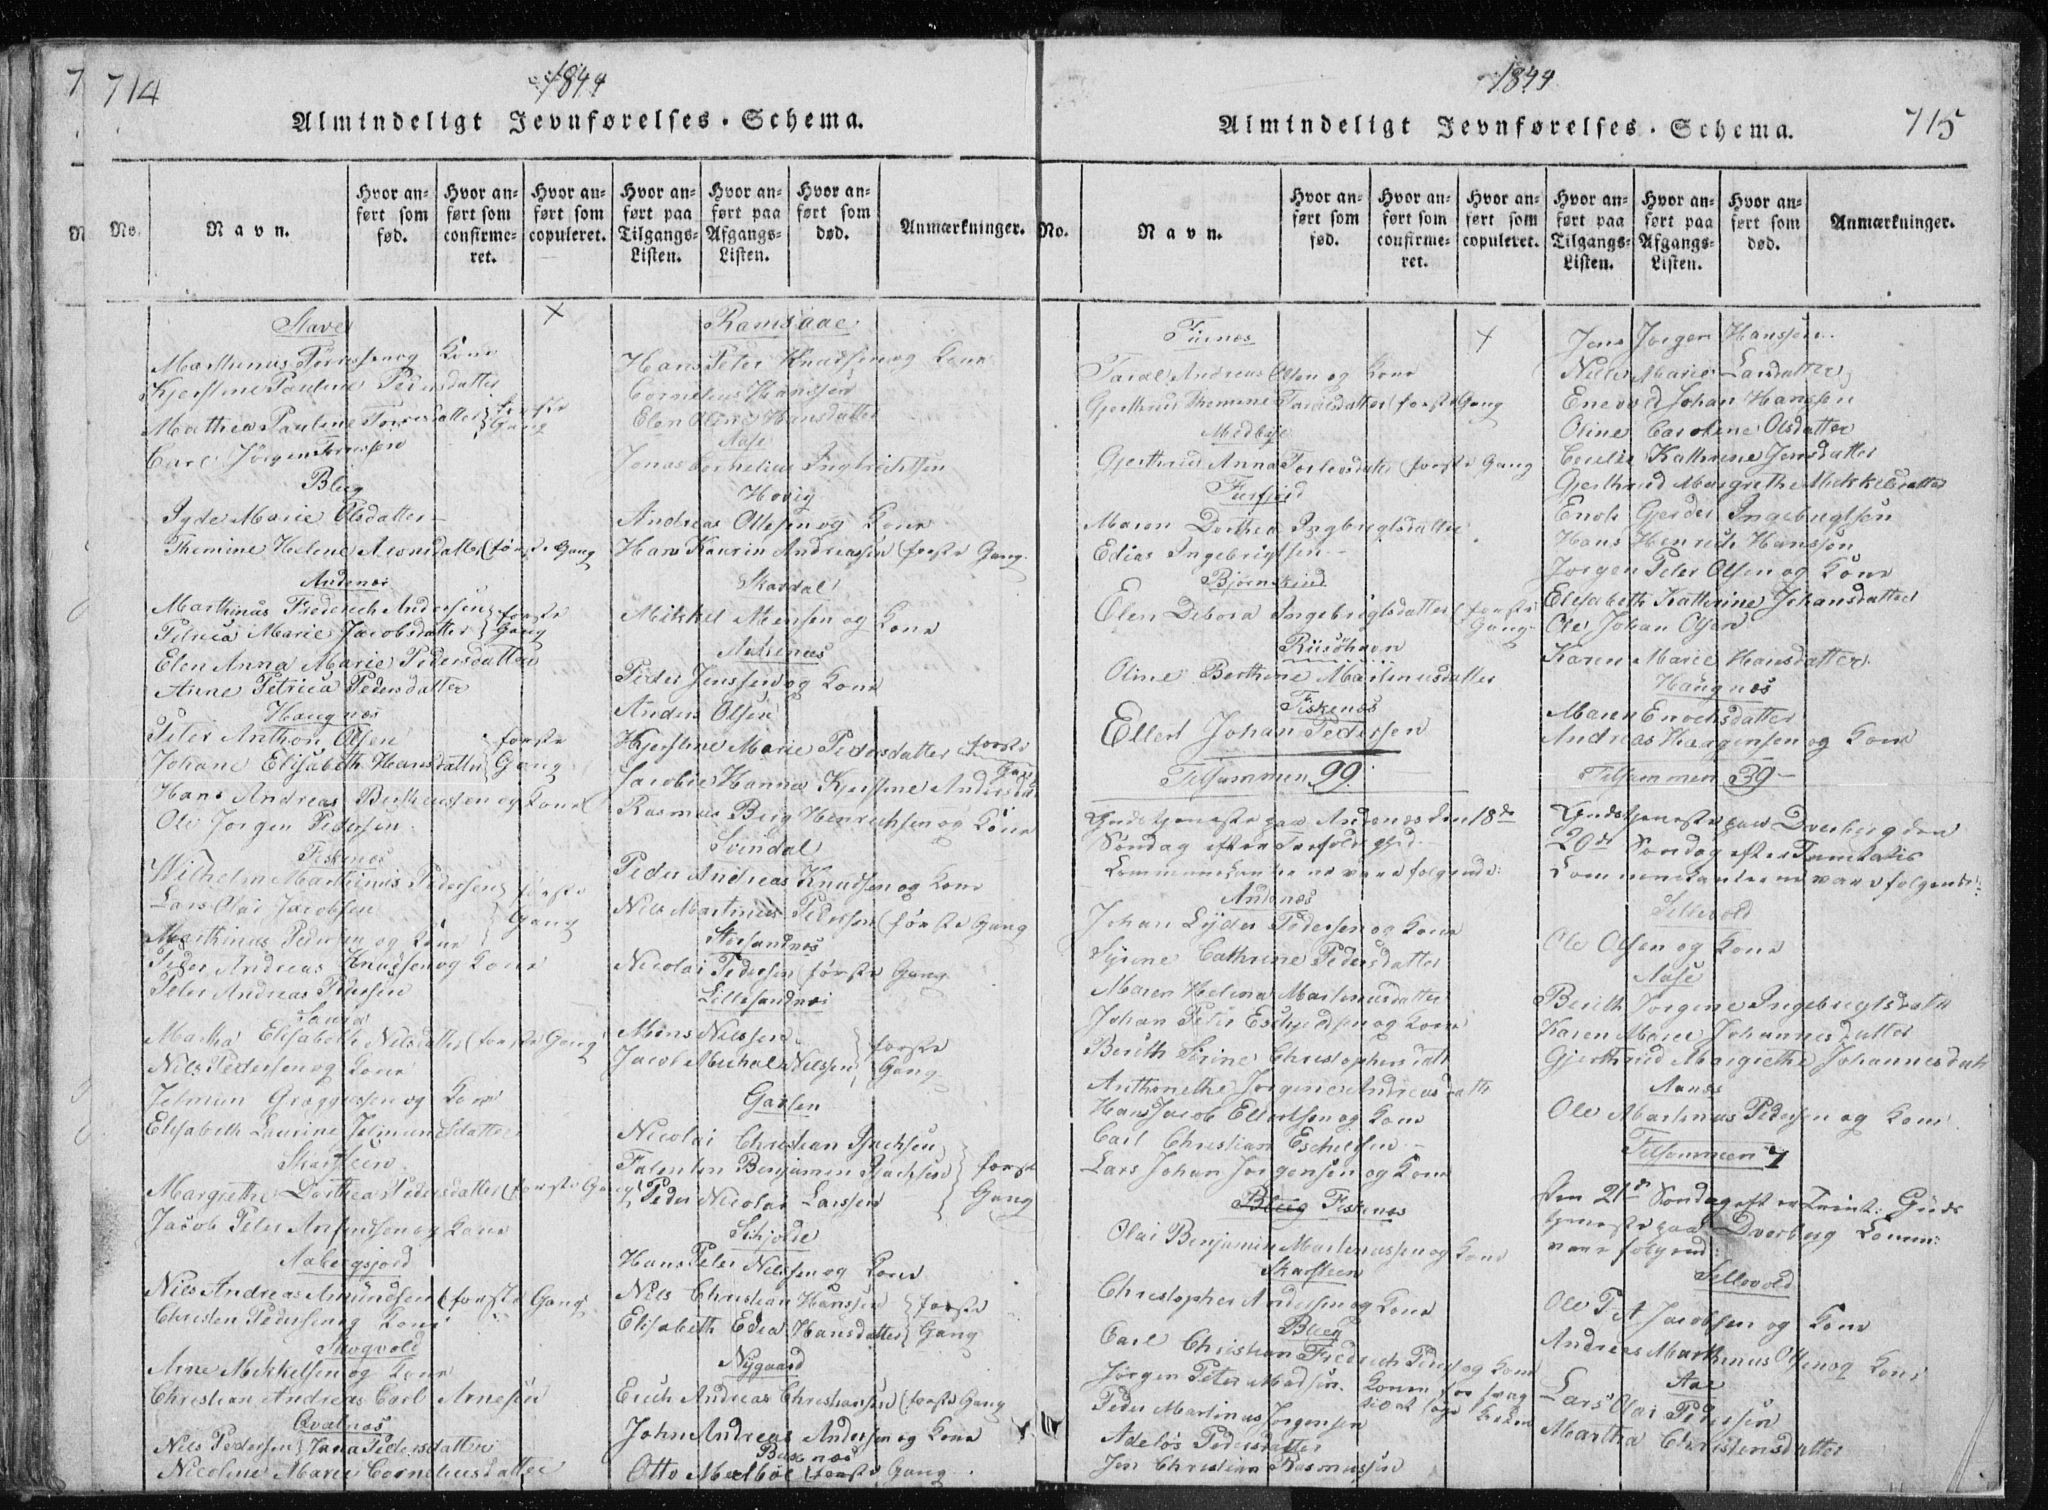 714
1844
Almindeligt Jevnførelses-Schema.
No.
Navn.
Hvor anført som fød.
Hvor anført som confirmeret.
Hvor anført som copuleret.
Hvor anført paa Tilgangs-Listen.
Hvor anført paa Afgangs-Listen.
Hvor anført som død.
Anmærkninger.
Stave
Marthinus Tørresen og Kone
Kjerstine Pauline Pedersdatter
Mathea Pauline Torresdatter første Gang
Carl Jørgen Torresen
Bleig
Syde Marie Olsdatter
Themine Helene Aronsdatter første Gang
Andenæs
Marthinus Frederich Andersen første
Petrica Marie Jacobsdatter Gang
Elen Anna Marie Pedersdatter
Anne Petrica Pedersdatter
Haugnæs
Peter Anthon Olsen første
Johane Elisabeth Hansdatter Gang
Hans Andreas Bertheussen og Kone
Ole Jørgen Pedersen
Fiskenæs
Wilhelm Marthinus Pedersen første
Lars Olai Jacobsen Gang
Marthinus Pedersen og Kone
Peder Andreas Knudsen og Kone
Peter Andreas Pedersen
Saura
Martha Elisabeth Nilsdatter første Gang
Nils Pedersen og Kone
Jelmun Græggersen og Kone
Elisabeth Laurine Jelmunesdatter
Skarsteen
Margrethe Dorthea Pedersdatter første Gang
Jacob Peter Arntsen og Kone
Aabergsjord
Nils Andreas Amundsen første Gang
Christen Pedersen og Kone
Skogvold
Arne Mikkelsen og Kone
Christian Andreas Carl Arnesen
Qvalnæs
Nils Pedersen Jana Pedersdatter
Nicoline Marie Corneliusdatter
Ramsaae
Hans Peter Knudsen og Kone
Cornelius Hanssen
Elen Oline Hansdatter
Aase
Jonas Cornelius Ingbrichtsen
Hovig
Andreas Ottesen og Kone
Hans Kaurin Andreassen første Gang
Skardal
Mikkel Monsen og Kone
Aknæs
Peder Jenssen og Kone
Anders Olsen
Kjerstine Marie Pedersdatter første Gang
Jacobie Hanna Kjerstine Andersdat
Rasmus Berg Henrichsen og Kone
Svindal
Peder Andreas Knudsen og Kone
Nils Martinus Pedersen første Gang
Storsandnæs
Nicolai Pedersen første Gang
Lillesandnæs
Mons Nilssen første
Jacob Michal Nilssen Gang
Garten
Nicolai Christian Isachsen
Falentin Benjamin Isachsen første
Peder Nicolai Larssen Gang
Skjolde
Hans Peter Nilssen og Kone
Nils Christian Hanssen første
Elisabeth Edea Hansdatter Gang
Nygaard
Erich Andreas Christiansen første Gang
John Andreas Andersen og Kone
Buksnæs
Otto Medbøe første Gang
1844
715
Almindeligt Jevnførelses-Schema.
No.
Navn.
Hvor anført som fød.
Hvor anført som confirmeret.
Hvor anført som copuleret.
Hvor anført paa Tilgangs-Listen.
Hvor anført paa Afgangs-Listen.
Hvor anført som død.
Anmærkninger.
Taral Andreas Olsen og Kone
Gjerthrud Themine Taralsdatter første Gang
Medbye
Gjerthrud Anna Torlevsdatter første Gang
Maren Dorthea Ingbrigtsdatter
Edias Ingebrigtsen
Bjørnskind
Elen Debora Ingebrigtsdatter første Gang
Risøhavn
Oline Berthine Martinusdatter
Fiskenæs
Ellert Johan Pedersen
Tilsammen 99
Gudstjeneste paa Andenæs den 18de
Søndag efter Trefoldighed
Communikanterne vare følgende:
Andenæs
Johan Lyder Pedersen og Kone
Syrine Cathrine Pedersdatter
Maren Helena Martinusdatter
Johan Peter Eschildsen og Kone
Berith Sirine Christophersdatt
Anthonethe Jørgine Andreasdatt
Hans Jacob Ellertsen og Kone
Carl Christian Eschilsen
Lars Johan Jørgensen og Kone
Bleeg Fiskenæs
Olai Benjamin Martinussen og Kone
Skarsteen
Christopher Andersen og Kone
Bleeg
Carl Christian Fredrich Peders og Kone
Jørgen Peter Madsen
Peder Martinus Jørgensen
Adeløs Pedersdatter
Jens Christian Rasmussen
Jens Jørgen Hanssen
Nille Marie Larsdatter
Enevold Johan Hanssen
Oline Caroline Olsdatter
Cecilie Kathrine Jensdatter
Gjerthrud Margrethe Mikkelsdatter
Enok Gerder Ingebrigtsen
Hans Henrich Hansson
Jørgen Peter Olsen og Kone
Elisabeth Katherine Johansdatter
Ole Johan Olsen
Karen Marie Hansdatter
Haugnæs
Maren Enochsdatter
Andreas Haagensen og Kone
Tilsammen 39
Gudstjeneste paa Dverberg den
20de Søndag efter Trinitatis
Communicanterne vare følgende:
Sellevold
Ole Olsen og Kone
Aase
Berith Jørgine Ingebrigtsdatt
Karen Marie Johannesdatter
Gjerthrud Margrethe Johannesdatt
Aanæs
Ole Martinus Pedersen og Kone
Tilsammen 7
Den 21de Søndag efter Trinit: Guds
tjeneste paa Dverberg Comm:
vare følgend:
Sellevold
Ole P A Jacobsen og Kone
Andreas Marthinus Olsen og Kone
Aae
Lars Olai Pedersen
Martha Christensdatter